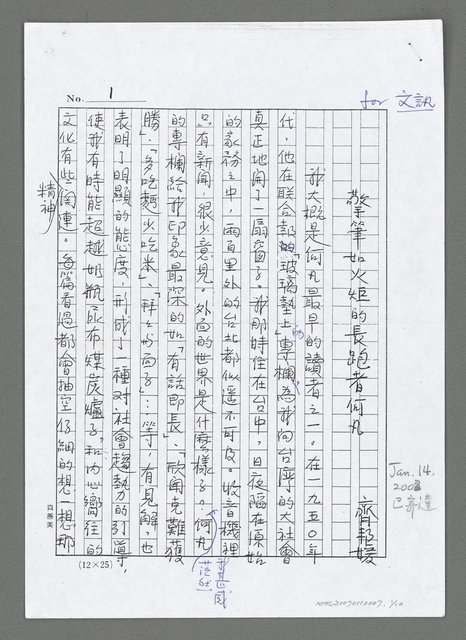 No. 1
for 文訊
擎筆如火炬的長跑者何凡
齊邦媛
我大概是何凡最早的讀者之一。在一九五〇年
代，他在聯合報的「玻璃墊上」專欄，為我向台灣的大社會
真正地開了一扇窗子。我那時住在台中，日夜陷在原始
的家務之中，兩百里外的台北都似遙不可及。收音機裡
只有新聞，很少意見。外面的世界是什麼樣子。何凡
的專欄給我印象最深的如「有話即長」、「欣聞克難獲
勝」、「多吃麵少吃米」、「拜拜面子」…等，有見解，也
表明了明顯的態度，形成了一種對社會趨勢力的引導，
使我有時能超越奶瓶尿布煤炭爐子，和內心嚮往的
文化有些関連。每篇看過都會抽空仔細的想一想那
精神
的
Jan. 14,
2003
已寄達
(12×25)
NMTL20070110007. 1/10